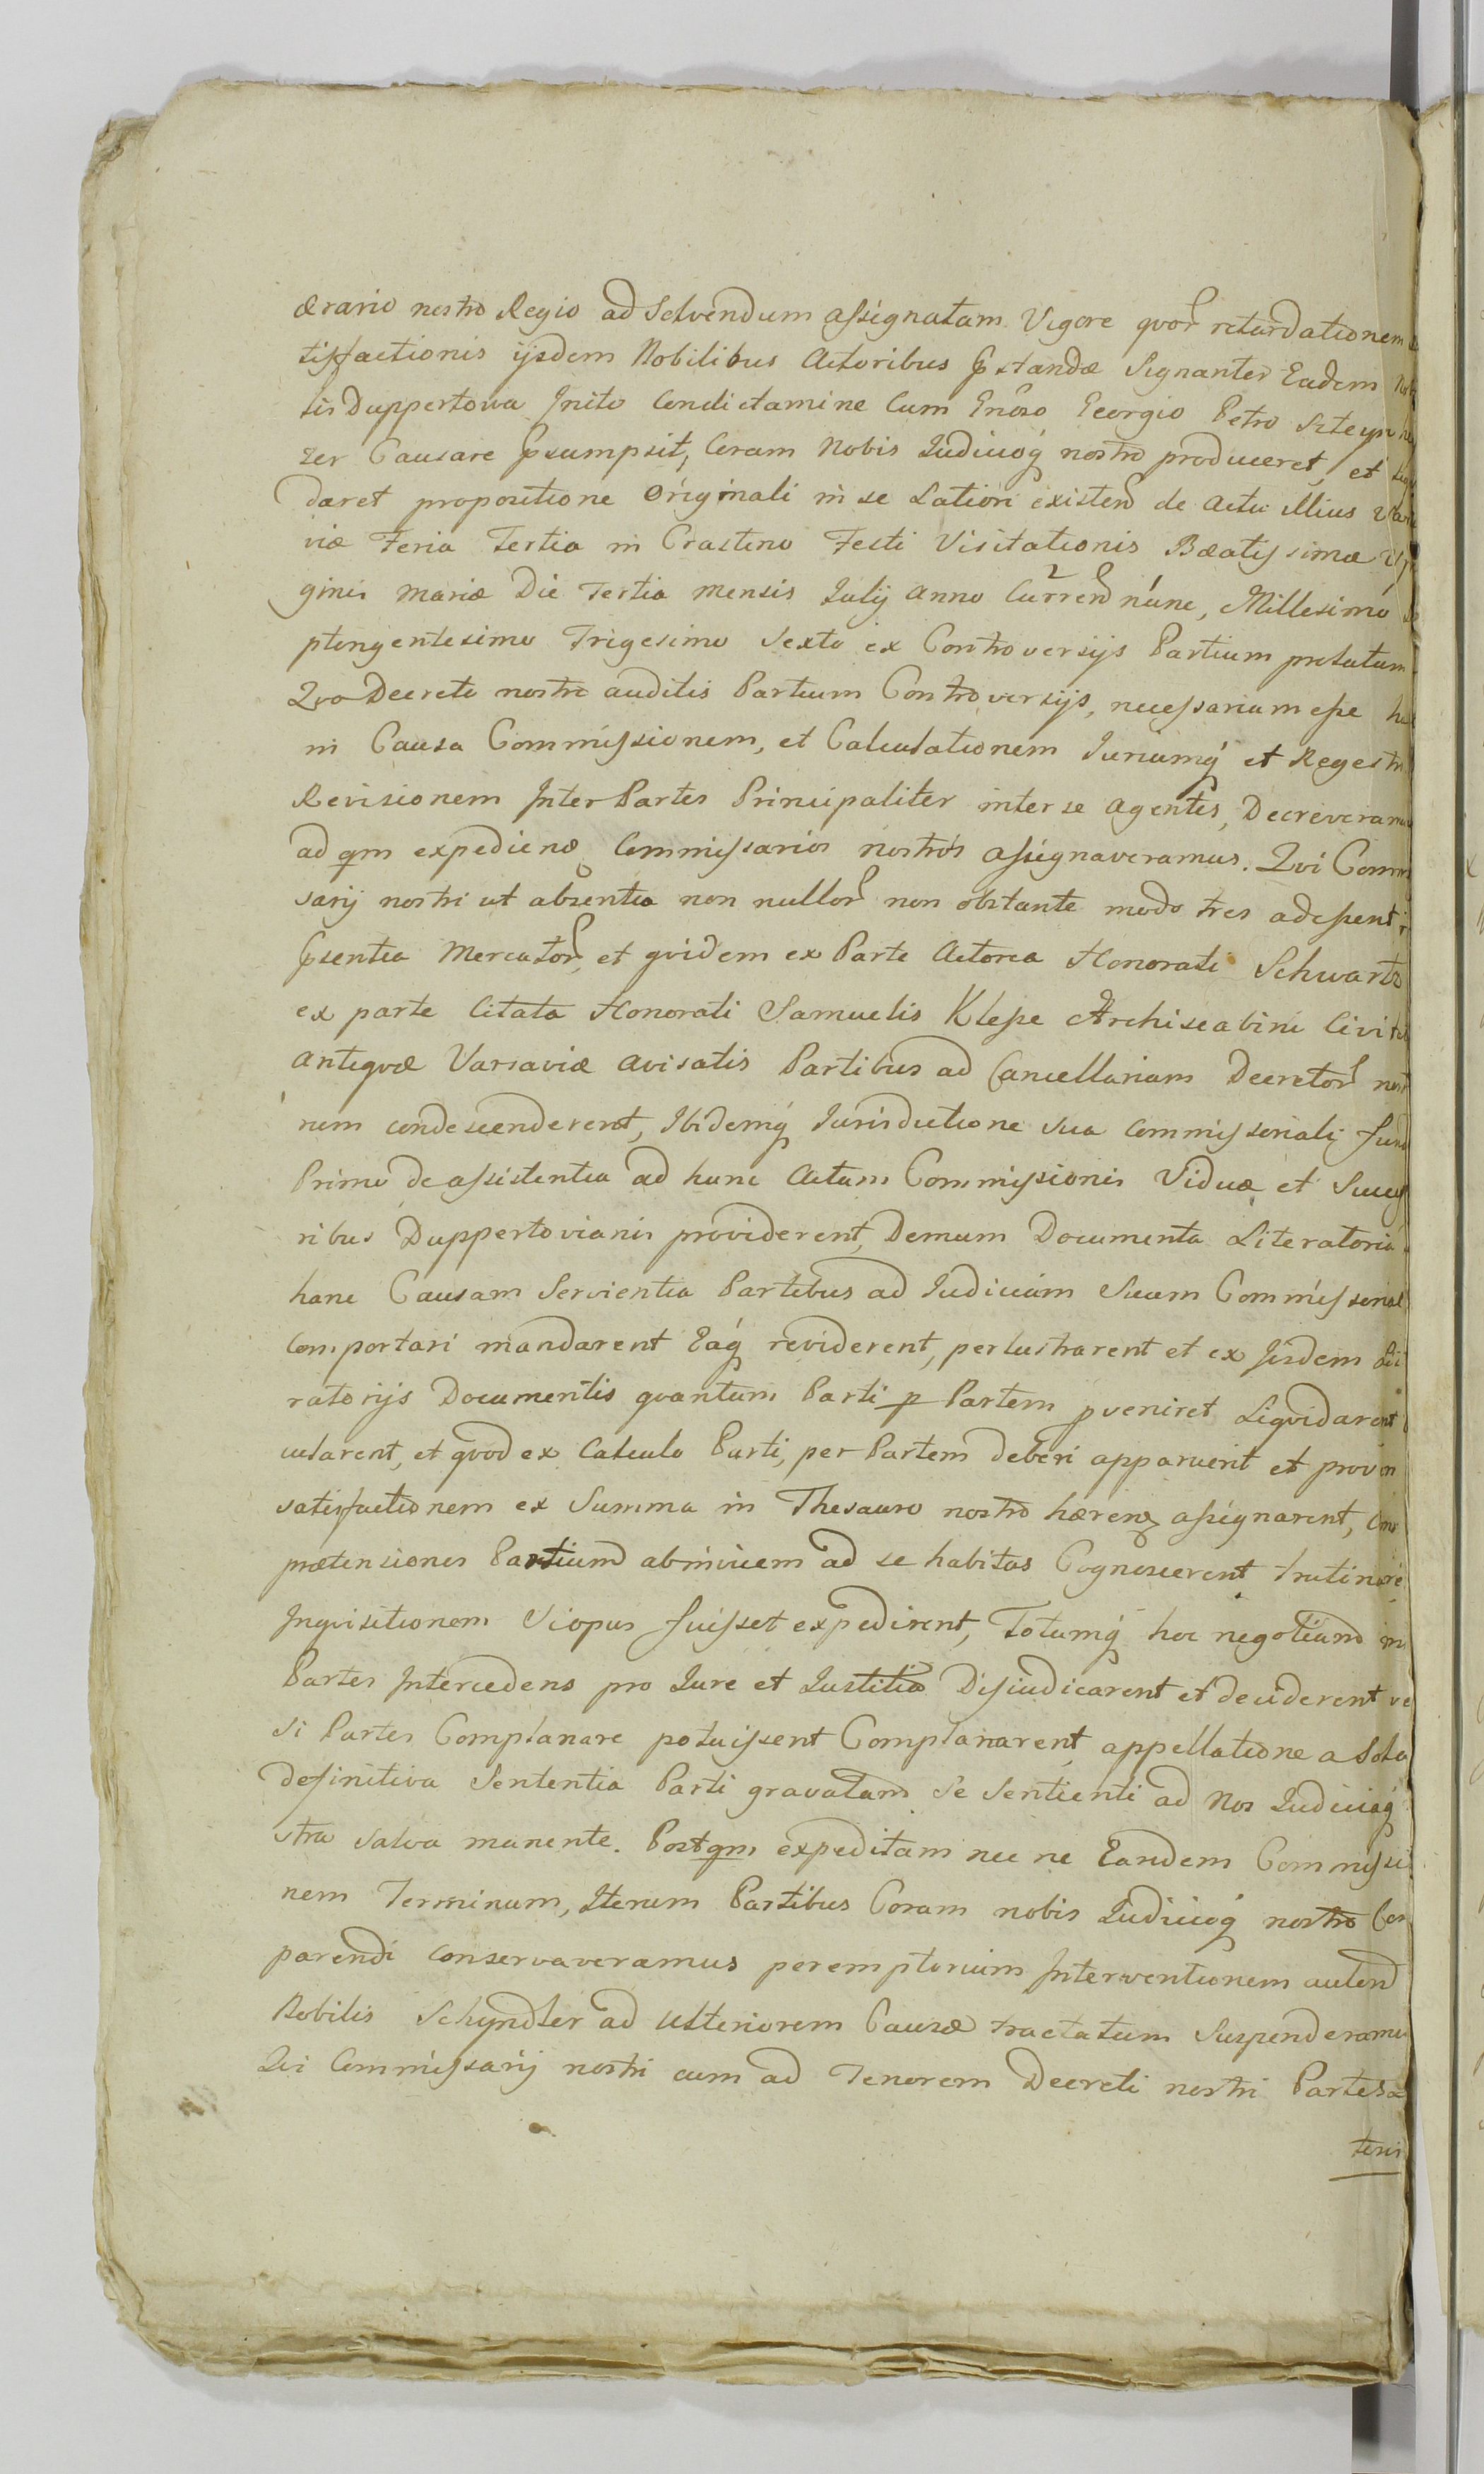 ærario nostro Regio ad Solvendum assignatam Vigore qvor retardationem
tisfactionis ijsdem Nobilibus Actoribus pxtandæ Signanter Eadem
tis Duppertowa Inito Condictamine Cum Gnoso Georgio Petro Szteyn
zer Causare psumpsit, Coram Nobis Iudicioq nostro produceret, et
daret propositione Originali in se Latiori existen de actu illius
viæ Feria Tertia in Crastino Festi Visitationis Bæatissimæ
ginis Mariæ Die Tertia mensis Iulij Anno Curren nunc, Millesimo
ptingentesimo Trigesimo Sexto ex Controversijs Partium prolatum
Qvo Decreto nostro auditis Partium Controversijs, necessariam esse
in Causa Commissionem, et Calculationem Iuriumq et Regestr
Revisionem Inter Partes Principaliter inter se agentes, Decreveramus
ad qm expedien Commissarios nostros assignaveramus. Qvi Commi
sarij nostri ut absentia non nullor non obstante modo tres adessent
psentia Mercator, et qvidem ex Parte Actorea Honorati Schwartz
ex parte Citata Honorati Samuelis Klesse Archiscabini Civit
antiqvæ Varsaviæ avisatis Partibus ad Cancellariam Decretor
rum condescenderent, Ibidemq Iurisdictione sua Commissoriali fund
Primo de assistentia ad hunc Actum Commissionis Viduæ et Success
ribus Duppertovianis providerent, Demum Documenta Literatoria
hanc Causam Servientia Partibus ad Iudicium Suum Commissorial
Comportari mandarent Eaq reviderent, perlustrarent et ex Iisdem
ratorijs Documentis qvantum Parti p Partem pveniret Liqvidarent
cularent, et qvod ex Calculo Parti, per Partem deberi apparuerit et proven
satisfactionem ex Summa in Thesauro nostro hæren assignarent,
prætensiones Partium abinvicem ad se habitas Cognoscerent trutinare
Inqvisitionem Si opus fuisset expedirent, Totumq hoc negotium in
Partes Intercedens pro Iure et Iustitia Disiudicarent et deciderent
si Partes Complanare potuissent Complanarent, appellatione a Sola
definitiva Sententia Parti gravatam se Sentienti ad Nos Iudiciaq
stra salva manente. Postqm expeditam nec ne Eandem Commissi
nem Terminum, Iterum Partibus Coram nobis Iudicioq nostro Com
parendi conservaveramus peremptorium Interventionem autem
Nobilis Schyndler ad Ulteriorem Causæ tractatum Suspenderamus
Qvi Commissarij nostri cum ad Tenorem Decreti nostri Partes